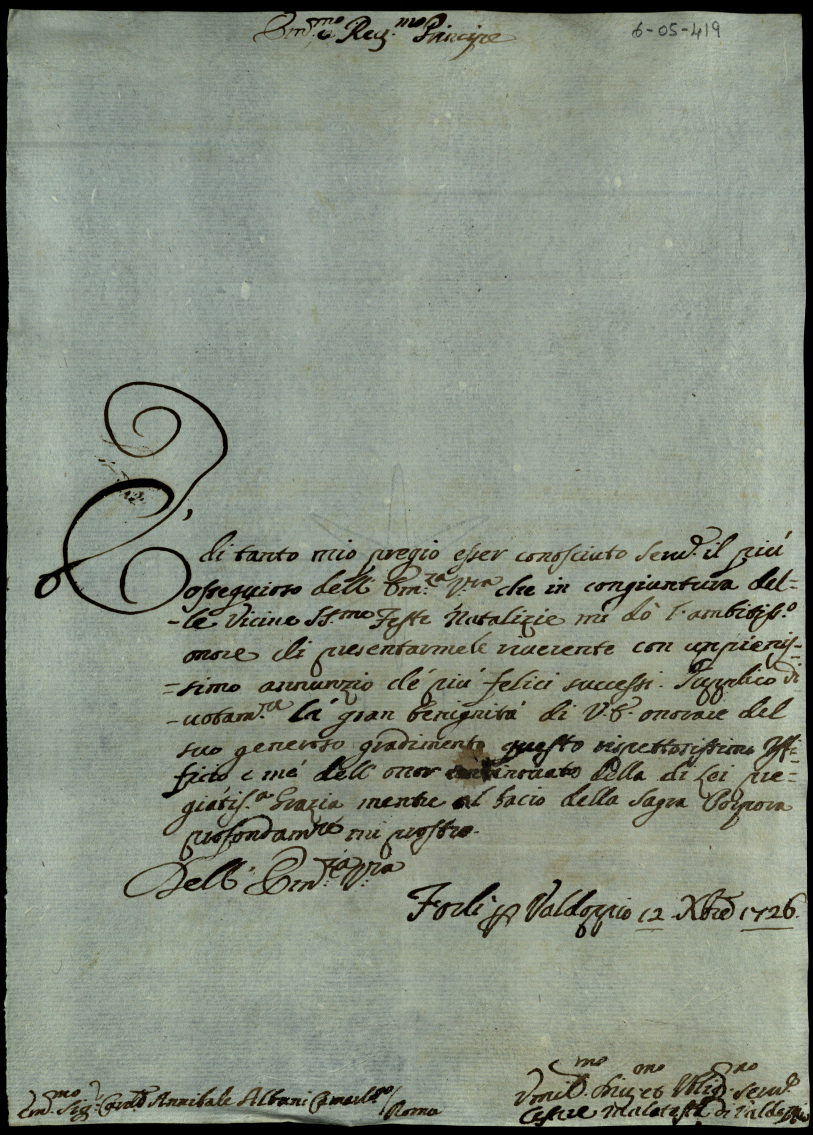 Em.mo e Reu.mo Principe
6-05-419
È di tanto mio pregio esser conosciuto seru.e il più
osseguioso dell' Em.za V.ra che in congiuntura del=
=le Vicine SS.me Feste Natalizie mi dò l'ambitiss.o
onore di presentarmele riuerente con un pienis=
=simo annunzio de' più felici successi. Supplico di
uotam.te la gran benignità di V.E. onorare del
suo generoso gradimento questo rispettosissimo Uffi=
ficio e me dell' onor continouato della di Lei pre=
giatiss.a Grazia mentre al bacio della Sagra Porpora
profondam.te mi prostro.
Dell' Em.za V.ra
Forlì p Valdoppio 12 Xbre 1726.
Em.mo Sig.r Card.le Annibale Albani Camarl.go / Roma
Vmil.mo Diu.mo et Oblig.mo Seru.e
Cesare Malatesti di Valdoppio